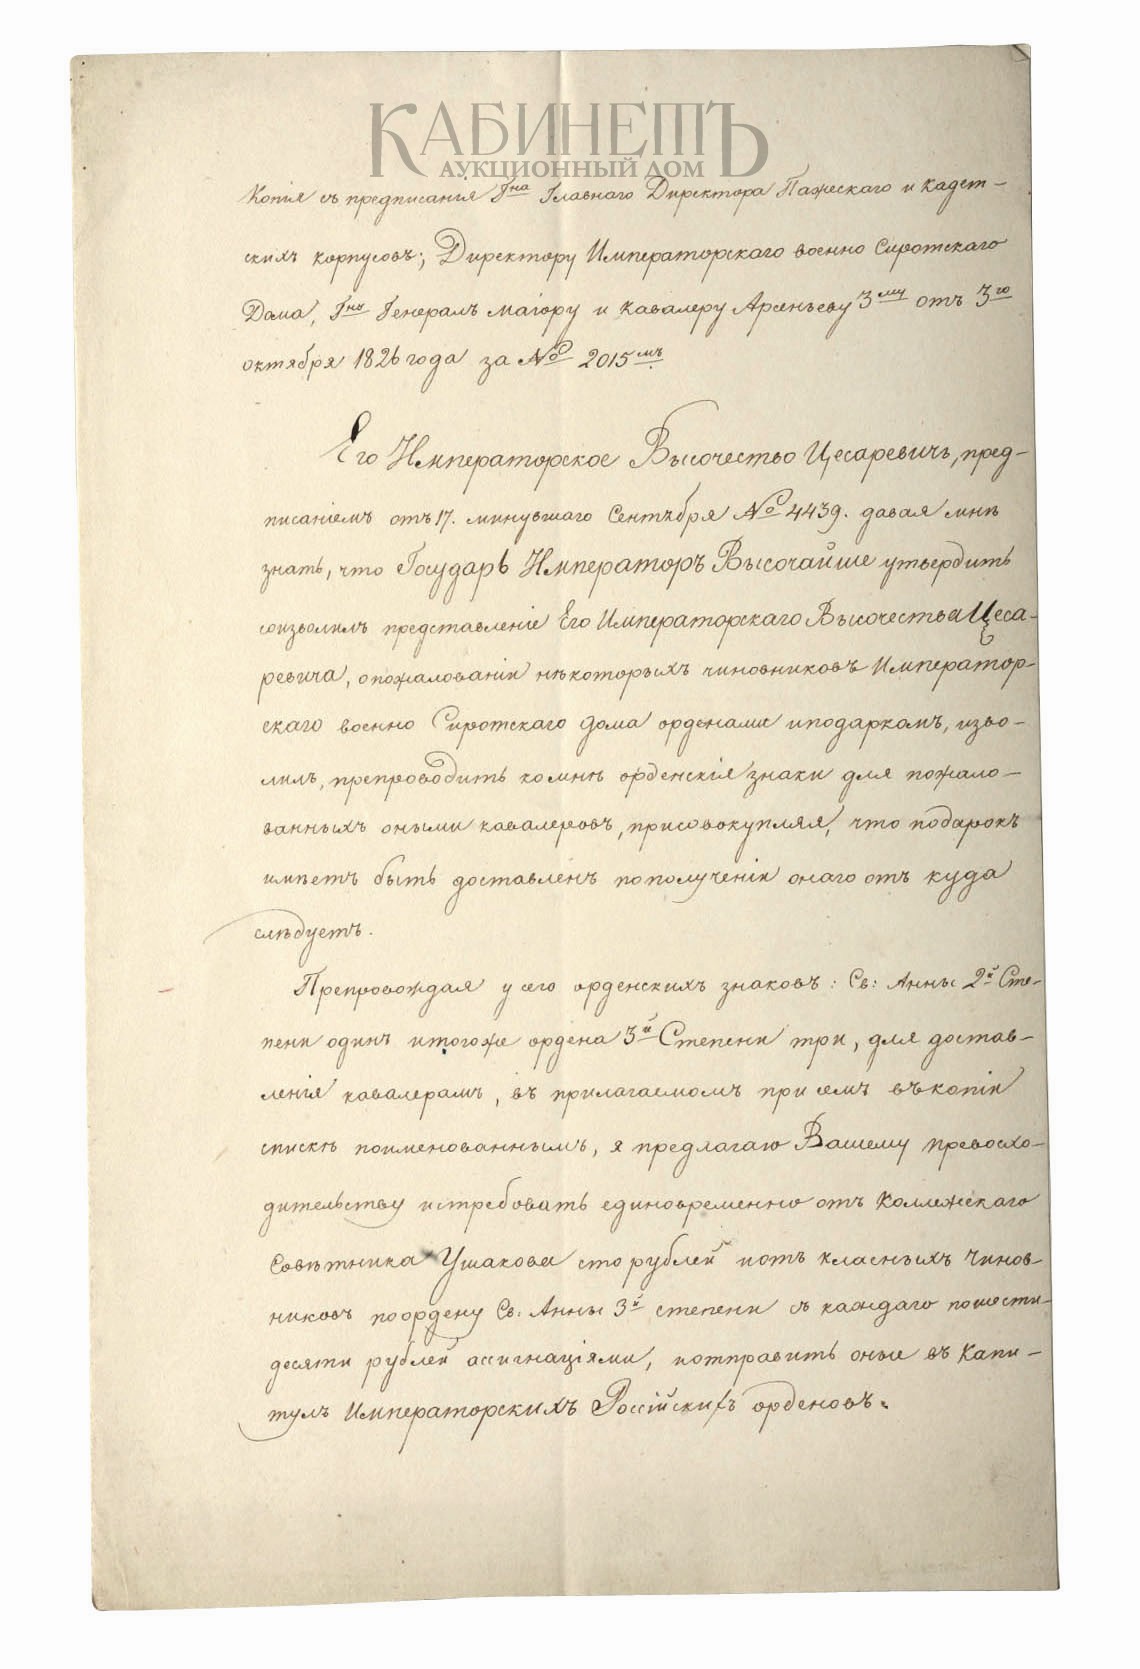 КАБИНЕТЪ
АУКЦИОННЫЙ ДОМ
Копія съ предписанія Гна Главнаго Директора Пажескаго и кадет-
скихъ корпусовъ; Директору Императорскаго военно Сиротскаго
Дома, Гну Генералъ маіору и кавалеру Арсеньеву 3му отъ 3го
октября 1826 года за № 2015мъ
Его Императорское Высочество Цесаревичъ, пред-
писаніемъ отъ 17. минувшаго Сентября № 4439. давая мнѣ
знать, что Государь Императоръ Высочайше утвердить
соизволилъ представленіе Его Императорскаго Высочества Цеса-
ревича, о пожалованіи нѣкоторыхъ чиновниковъ Император-
скаго военно Сиротскаго дома орденами и подаркомъ, изво-
лилъ, препроводить ко мнѣ орденскія знаки для пожало-
ванныхъ оными кавалеровъ, присовокупляя, что подарокъ
имѣетъ быть доставленъ по полученіи онаго отъ куда
слѣдуетъ.
Препровождая у сего орденскихъ знаковъ: Св: Анны 2й Сте-
пени одинъ и того же ордена 3й Степени три, для достав-
ленія кавалерамъ, въ прилагаемомъ при семъ въ копіи
спискѣ поименованнымъ, я предлагаю Вашему превосхо-
дительству истребовать единовременно отъ Коллежскаго
Совѣтника Ушакова сто рублей и отъ класныхъ чинов-
никовъ по ордену Св: Анны 3й степени съ каждаго по шести-
десяти рублей ассигнаціями, и отправить оные въ Капи-
тулъ Императорскихъ Россійскихъ орденовъ.